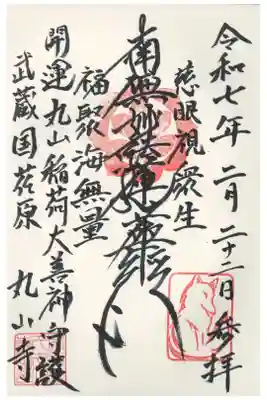 令和七年二月二十二日参拝
慈眼視衆生
南無妙法蓮華経
福聚海無量
開運丸山稲荷大善神守護
武蔵国荏原 丸山寺